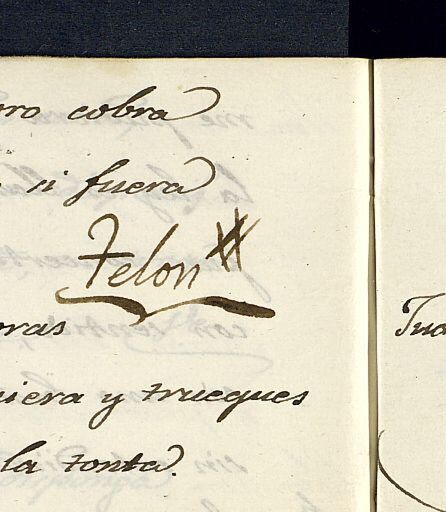 oro cobra
si fuera
Telon #
oras
uiera y trueques
la tonta.
Jua